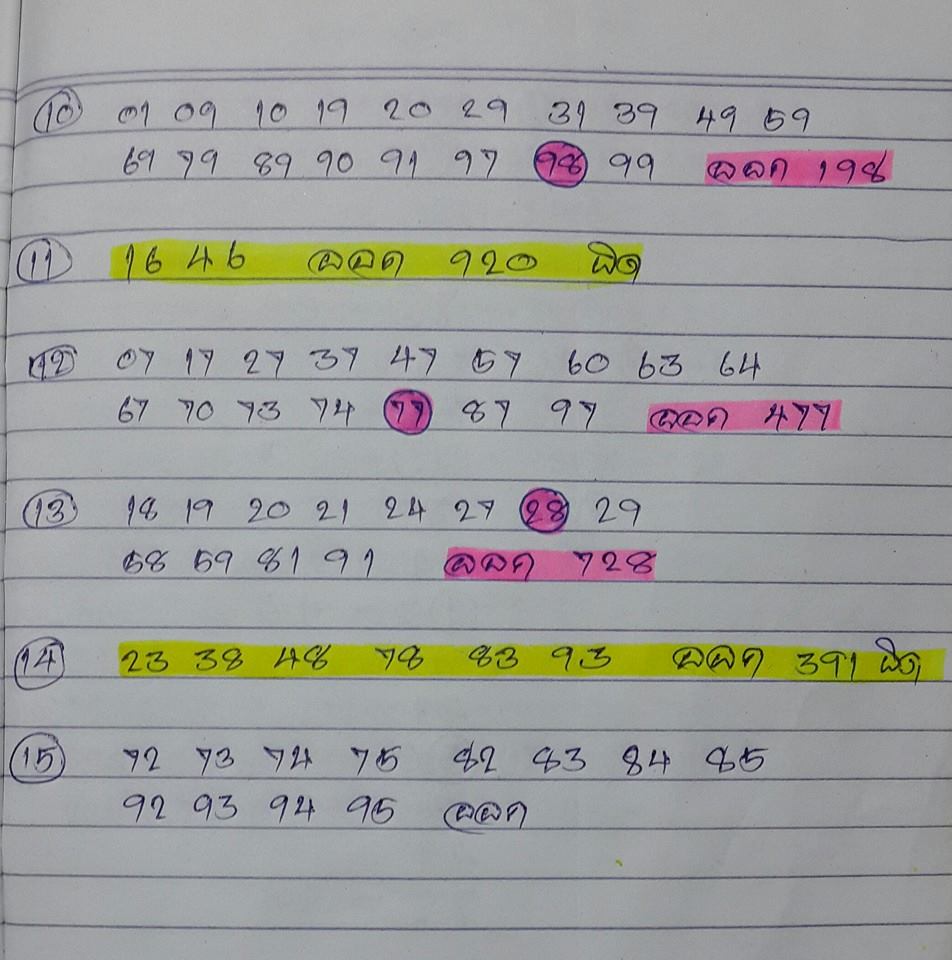 10 01 09 10 19 20 29 31 39 49 59
69 79 89 90 91 97 98 99 ออก 198
11 16 46 ออก 920 ผิด
12 07 17 27 37 47 57 60 63 64
67 70 73 74 77 87 97 ออก 477
13 18 19 20 21 24 27 28 29
58 59 81 91 ออก 728
14 23 38 48 78 83 93 ออก 391 ผิด
15 72 73 74 75 82 83 84 85
92 93 94 95 ออก